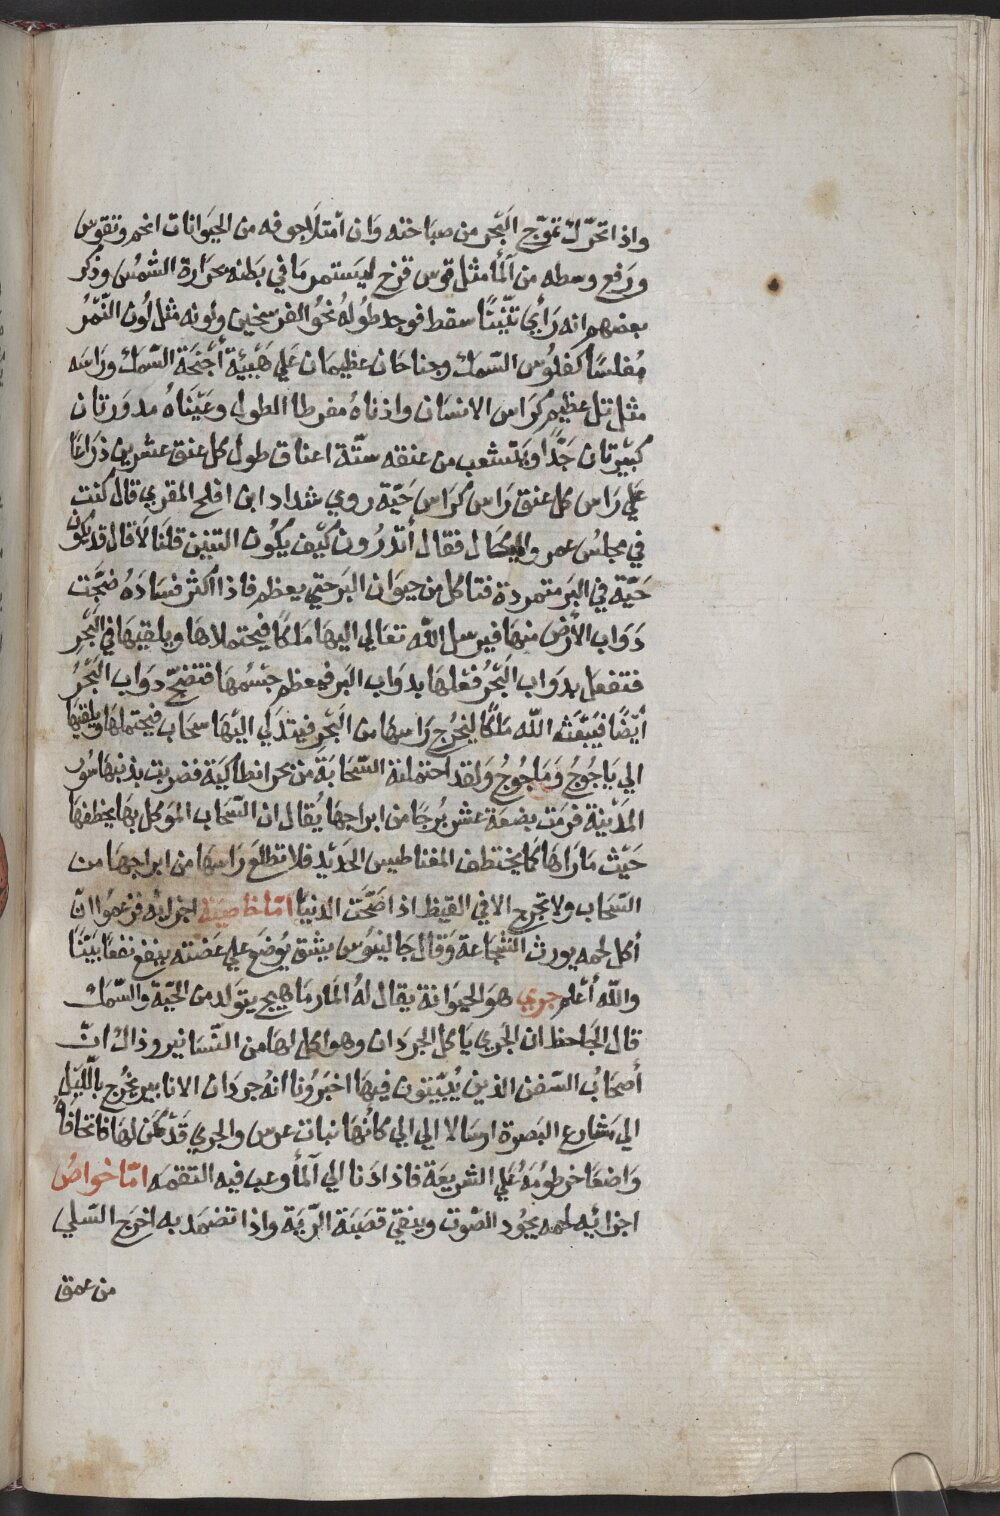 واذا تحرّك تموّج البَحر من صباحته وَان امتلا جوفه من الحيَوانات انحم وتقوس
ورَفع وسطه من المآ مثل قوس قزح ليستمر مَا في بَطنه بحرَارة الشمس وذكر
بعضهم انه رَأى تنّينًا سقط فوجد طُولهُ نحوُ الفرسخين ولونه مثل لون النّمُر
مُفلسًا كفلوُس السّمك وجناحَان عظيمان عَلي هَيئة أجنحَة السّمك ورَاسَه
مثل تل عظيم كرَاس الانسَان واذناهُ مفرطا الطول وعَيْنَاهُ مدوَرتان
كبيْرتان جَدًّا ويَتشعب من عنقه ستّة اعناق طول كل عنق عشرين ذرَاعًا
عَلي رَاس كل عنق رَاس كرَاس حَيّة روي شداد ابن افلح المقري قال كنت
في مجلسُ عمر والبكال فقال أتدرُون كيْف يكُون التنين قلنَا لاَ قال قد يكون
حَيّة في البَر متمردة فتاكل من حيوَان البَر حتي يعظم فاذا اكثر فسَادَهُ ضجَّت
دَوَاب الأرْض منهَا فيرسل الله تعَالي اليهَا مَلكًا فيحتملاهَا ويلقيهَا في البَحْر
فتفعل بدوَاب البَحْرُ فعْلهَا بدوَاب البَر فيعظم جسْمُهَا فتضجّ دوَاب البَحْرُ
أيْضًا فيَبْعَث الله مَلكًا ليخرُج رَاسهَا من البَحْر فيتدَلي اليْهَا سحَاب فيحتملهَا ويلقيها
الي يَاجُوجُ وَمَاجُوجُ وَلقد احتملة السّحَابَة من بحر انطاكيَة فضربت بذنبهَا سُور
المَدْينَة فرمَت بضعَة عشر بُرجًا من ابراجهَا يُقال ان السّحَاب المَوكل بهَا يخطفهَا
حَيْث مَا رَاهَا كمَا يختطف المغناطيس الحَديْد فلا تطلع رَاسهَا من ابراجهَا من
السّحَاب ولا تخرج الا في القيظ اذا اضْحَت الدنيَا امّا خاصيّة اجزايه فزعموُا انّ
أكل لحمه يورث الشّجَاعَة وَقال جَاليْنوُس يشق يُوضَع علي عَضّته ينفع نفعًا بيّنًا
والله أعلم جري هوَ الحيوَانة يقال لهُ المَار مَا هيج يتولد من الحيّة والسّمك
قال الجَاحظ ان الجري يَاكل الجردَان وهو اكل لهَا من السّنَانير وذاك انّ
أصحَابُ السّفن الذين يُبَيّتون فيهَا اخبرُونا انهُ جردَان الانابير يخرُج باللّيْل
الي مَشارع البَصرة ارسَالا الي الي كانهَا نبات عرس والجري قدْ كمن لهَا فاتحًا فاهُ
وَاضعًا خرطومَهُ عَلي الشريعَة فاذا دَنا الي المآ وعب فيه التقمَه امّا خواصُ
اجزائِه لحمه يجوُد الصّوت وينقي قصَبَة الرّيَة واذا تضمد به اخرَج السّلي
من عمق